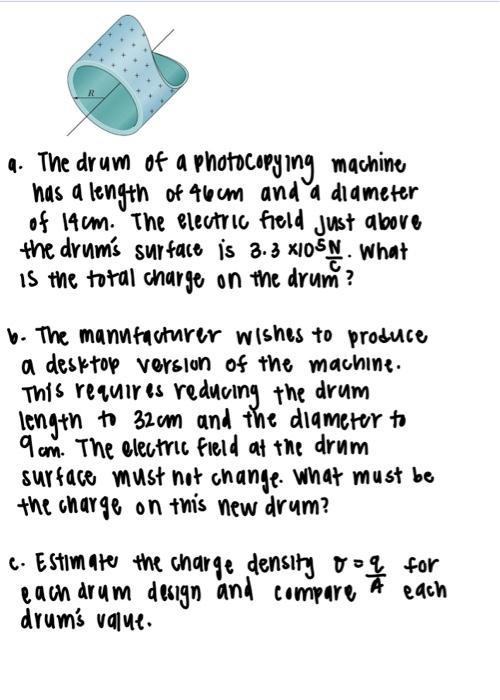 R
a. The drum of a photocopying machine
has a length of 46cm and a diameter
of 14cm. The electric field just above
the drum's surface is 3.3 x10⁵ N/C. What
is the total charge on the drum?
b. The manufacturer wishes to produce
a desktop version of the machine.
This requires reducing the drum
length to 32cm and the diameter to
9cm. The electric field at the drum
surface must not change. What must be
the charge on this new drum?
c. Estimate the charge density σ = q/A for
each drum design and compare each
drum's value.